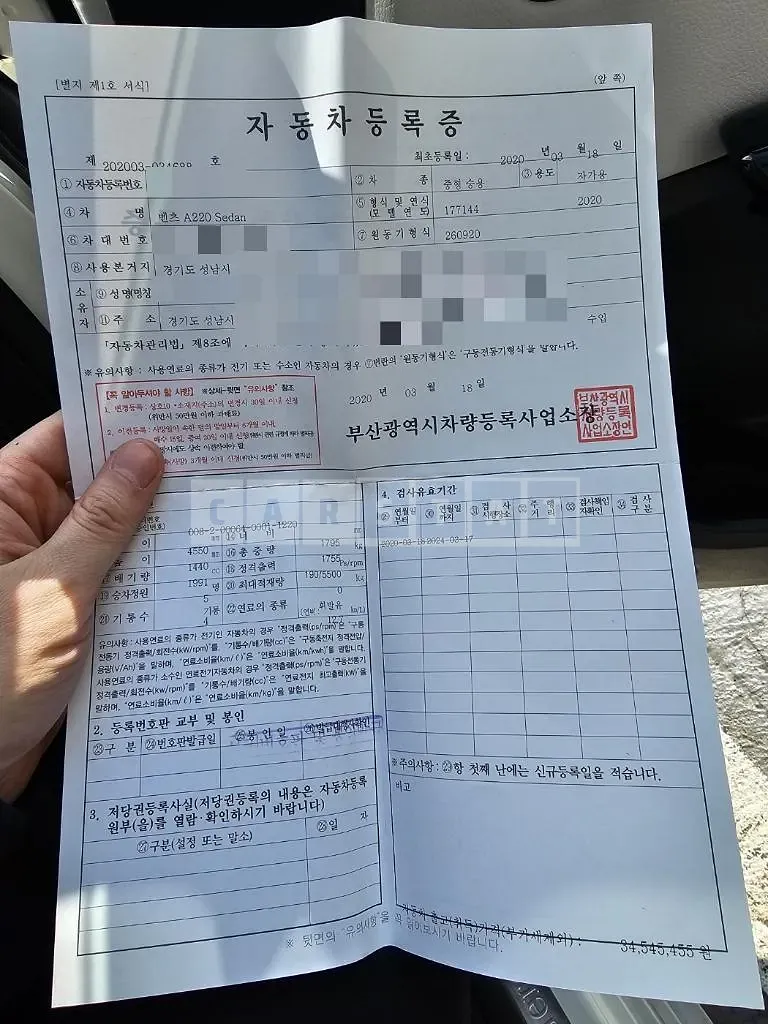 [별지 제1호 서식]
(앞 쪽)
자 동 차 등 록 증
제 202003- 호
최초등록일 : 2020 년 03 월 18 일
① 자동차등록번호
② 차 종 중형 승용
③ 용도 자가용
④ 차 명 벤츠 A220 Sedan
⑤ 형식 및 연식 (모델연도) 177144 2020
⑥ 차 대 번 호
⑦ 원동기형식 260920
⑧ 사용본거지 경기도 성남시
소유자
⑨ 성명(명칭)
⑪ 주 소 경기도 성남시
수입
「자동차관리법」 제8조에
※유의사항 : 사용연료의 종류가 전기 또는 수소인 자동차의 경우 ⑦번란의 '원동기형식'은 '구동전동기형식'을 말합니다.
[꼭 알아두셔야 할 사항] ※상세-뒷면 "유의사항" 참조
1. 변경등록 : 상호 변경시 30일 이내 신청
(위반시 50만원 이하 과태료)
2. 이전등록
2020 년 03 월 18 일
부산광역시차량등록사업소장
부산광역시
차량등록
사업소장인
CAR
008-2-00064-0001-1220
이 4550
⑭ 너 비 1795
이 1440
⑯ 총 중 량 1755 kg
⑰ 배 기 량 1991 cc
⑱ 정격출력 190/5500 Ps/rpm
⑲ 승차정원 5 명
⑳ 최대적재량 0 kg
㉑ 기 통 수 4 기통
㉒ 연료의 종류 휘발유
유의사항 : 사용연료의 종류가 전기인 자동차의 경우 "정격출력(ps/rpm)"은 "구동
전동기 정격출력/회전수(kw/rpm)"를, "기통수/배기량(cc)"은 "구동축전지 정격전압/
용량(v/Ah)"을 말하며, "연료소비율(km/ℓ)"은 "연료소비율(km/kwh)"을 말합니다.
사용연료의 종류가 수소인 연료전기자동차의 경우 "정격출력(ps/rpm)"은 "구동전동기
정격출력/회전수(kw/rpm)"를 "기통수/배기량(cc)"은 "연료전지 최고출력(kW)"을
말하며, "연료소비율(km/ℓ)"은 "연료소비율(km/kg)"을 말합니다.
2. 등록번호판 교부 및 봉인
㉓ 구 분 ㉔ 번호판발급일 ㉕ 봉 인 일
3. 저당권등록사실(저당권등록의 내용은 자동차등록
원부(을)를 열람·확인하시기 바랍니다)
㉗ 구분(설정 또는 말소) ㉘ 일 자
4. 검사유효기간
㉙ 연월일부터 ㉚ 연월일까지 ㉛ 검 사 시행장소 ㉜ 주 행 거 리 ㉝ 검사책임자확인 ㉞ 검 사 구 분
2020-03-18 2024-03-17
※주의사항 : ㉙항 첫째 난에는 신규등록일을 적습니다.
비고
자동차 출고(취득)가격(부가세제외) : 34,545,455 원
※ 뒷면의 "유의사항"을 꼭 읽어보시기 바랍니다.